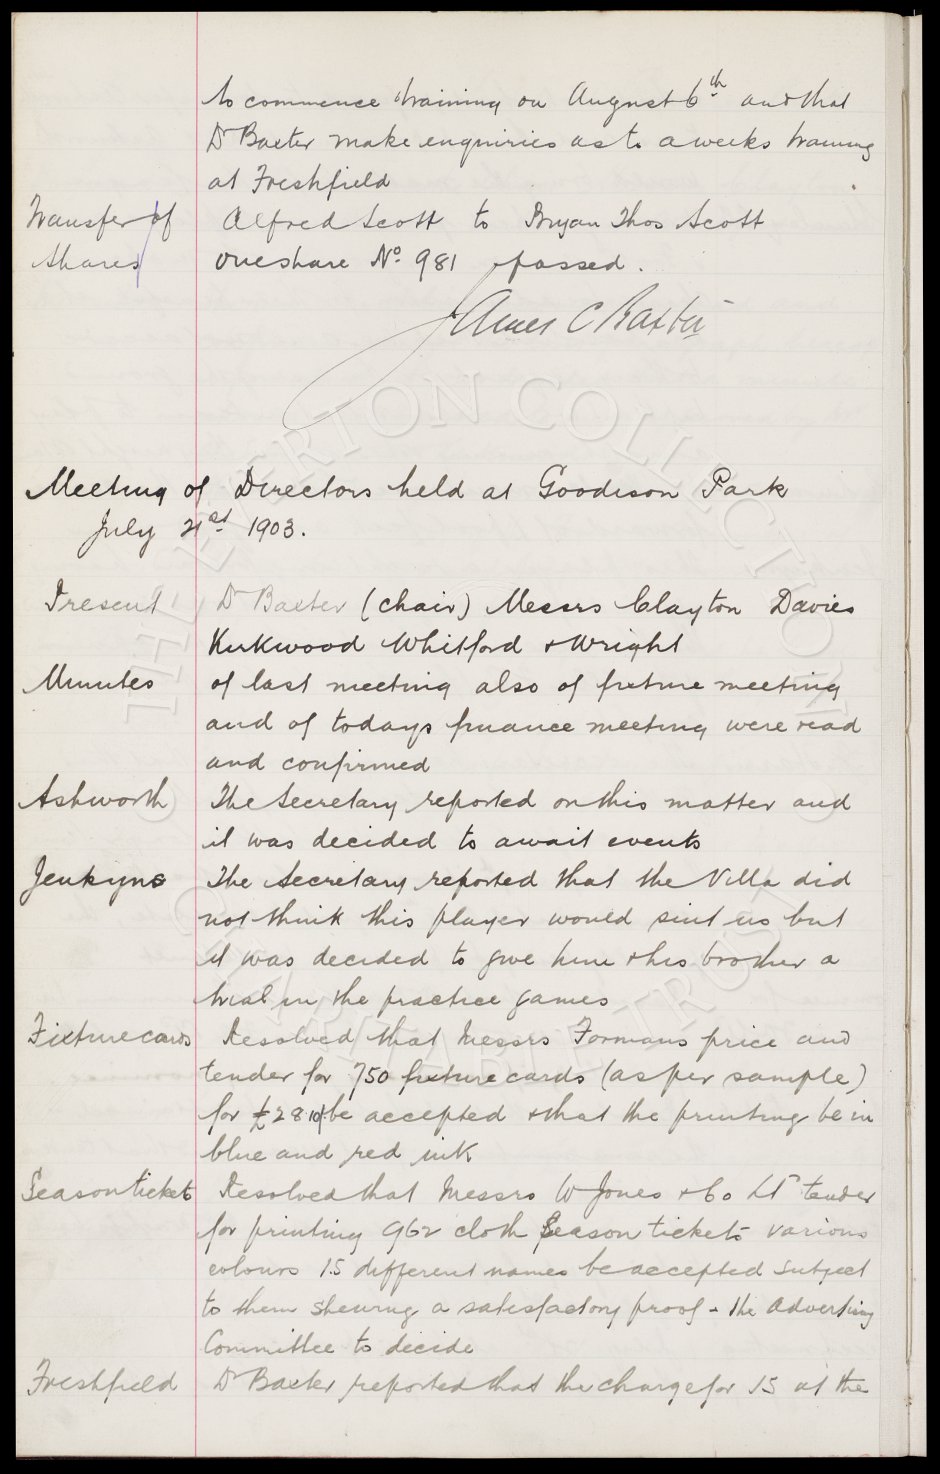 to commence training on August 6th and that
Dr Baxter make enquiries as to a weeks training
at Freshfield
Transfer of Alfred Scott to Bryan Thos Scott
Shares one share No. 981 passed.
James C Baxter
Meeting of Directors held at Goodison Park
July 21st 1903.
Present Dr Baxter (chair) Messrs Clayton Davies
Kirkwood Whitford & Wright
Minutes of last meeting also of fixture meeting
and of todays finance meeting were read
and confirmed
Ashworth The Secretary reported on this matter and
it was decided to await events
Jenkyns The Secretary reported that the Villa did
not think this player would suit us but
it was decided to give him & his brother a
trial in the practice games
Fixture cards Resolved that Messrs Formans price and
tender for 750 fixture cards (as per sample)
for £28 10/ be accepted & that the printing be in
blue and red ink
Season tickets Resolved that Messrs W Jones & Co Ld tender
for printing 962 cloth Season tickets various
colours 15 different names be accepted subject
to them shewing a satisfactory proof - the Advertising
Committee to decide
Freshfield Dr Baxter reported that the charge for 15 at the
THE EVERTON COLLECTION
CHARITABLE TRUST